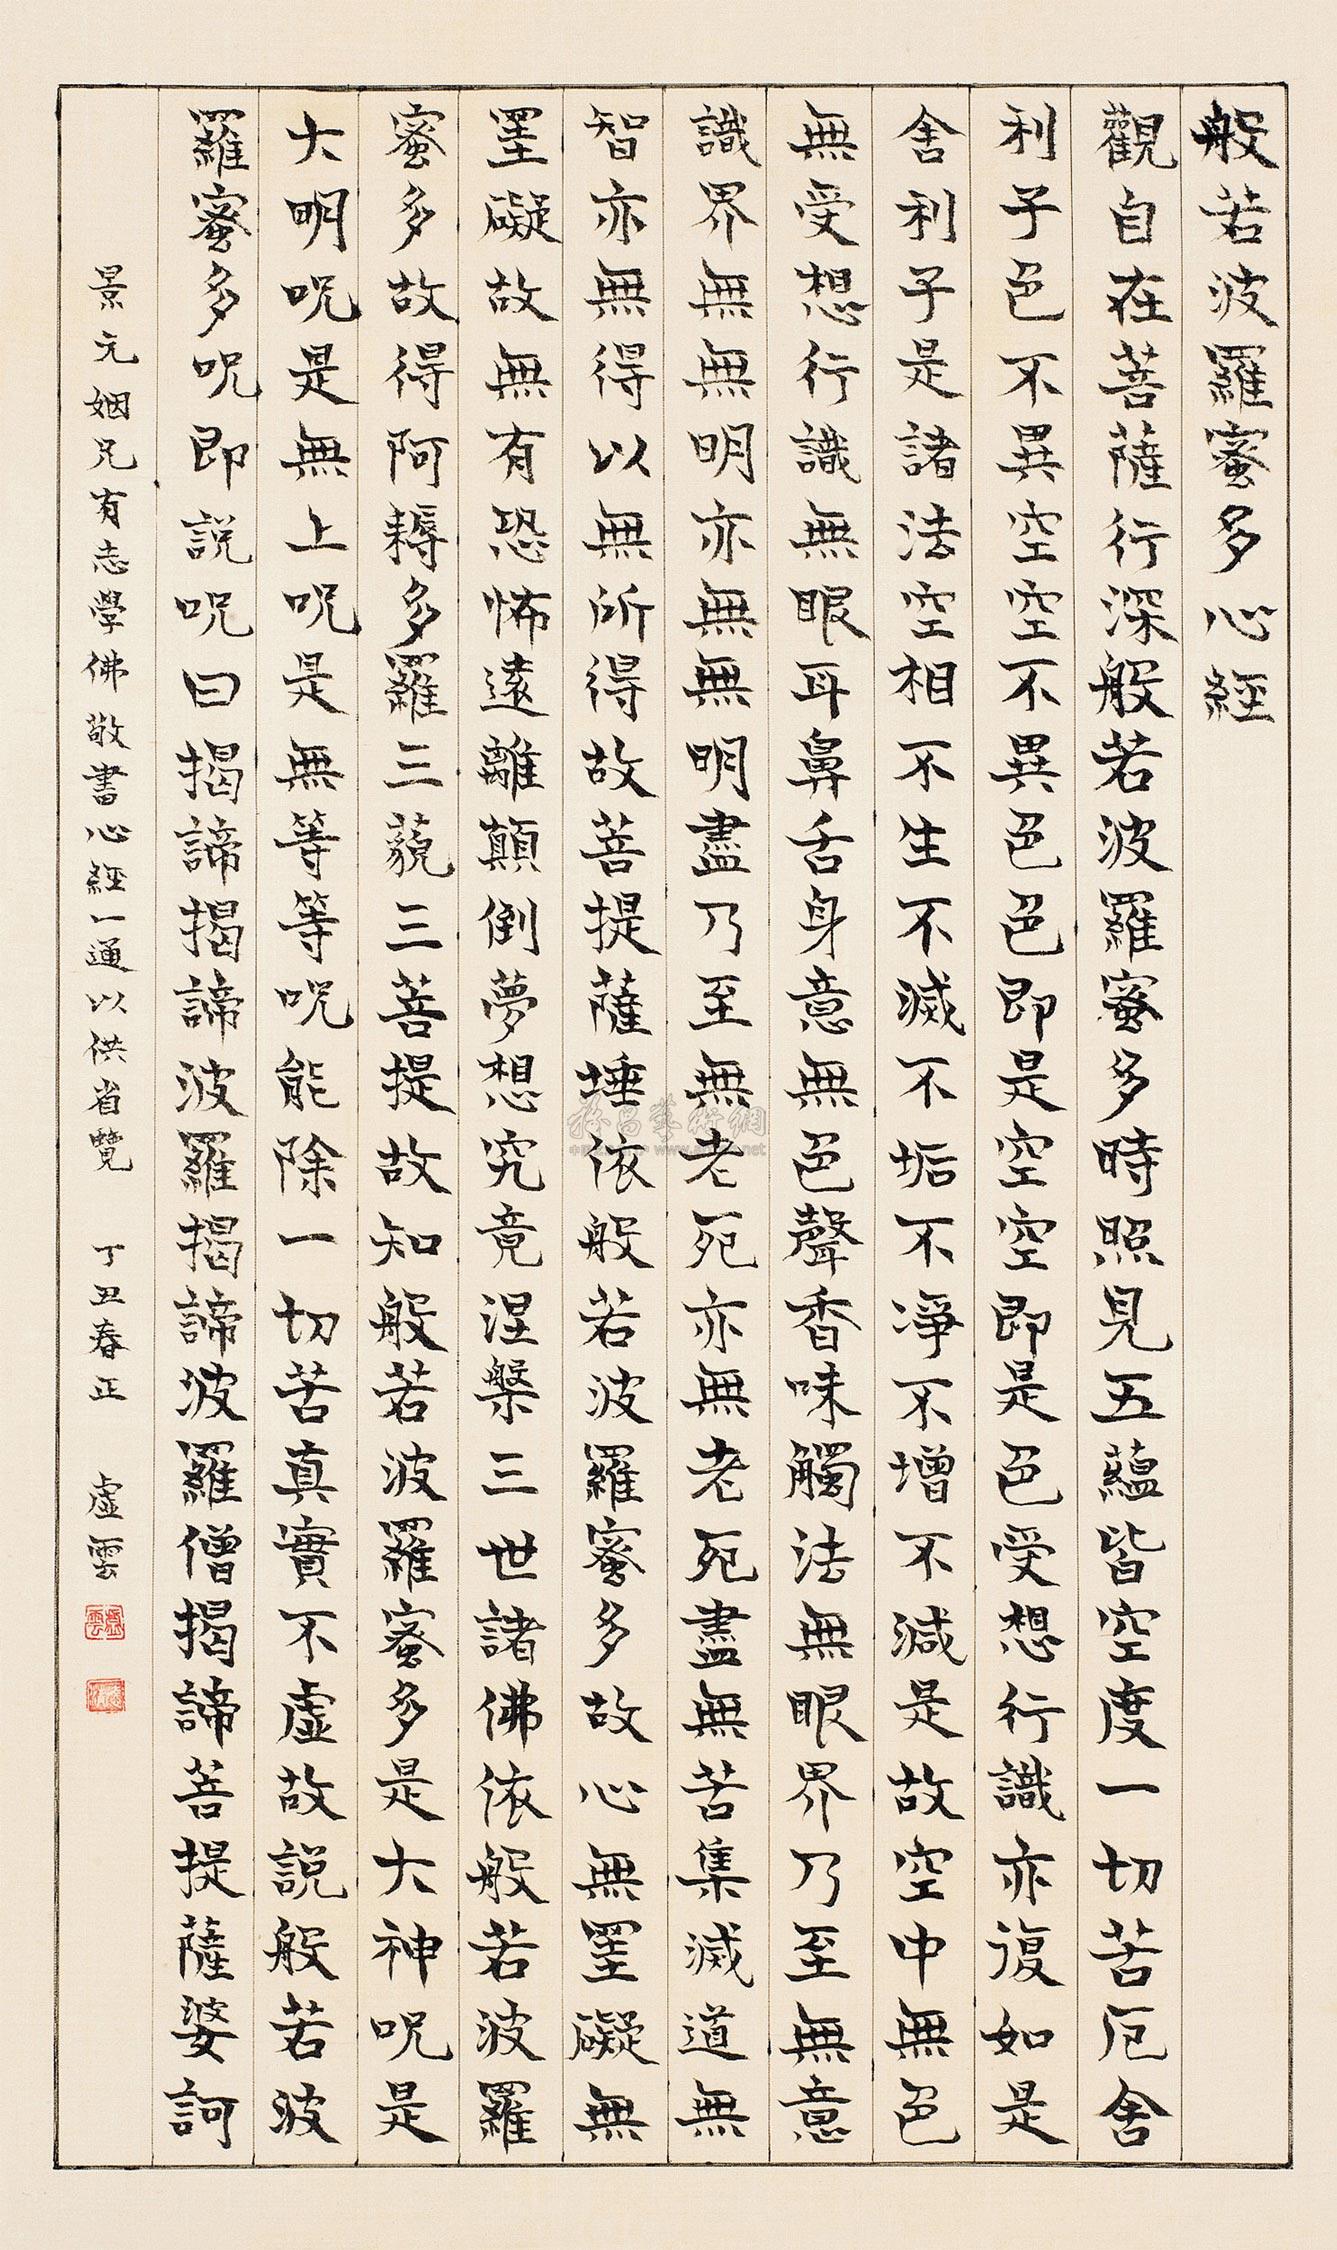 般若波羅蜜多心經
觀自在菩薩行深般若波羅蜜多時照見五蘊皆空度一切苦厄舍
利子色不異空空不異色色即是空空即是色受想行識亦復如是
舍利子是諸法空相不生不滅不垢不淨不增不減是故空中無色
無受想行識無眼耳鼻舌身意無色聲香味觸法無眼界乃至無意
識界無無明亦無無明盡乃至無老死亦無老死盡無苦集滅道無
智亦無得以無所得故菩提薩埵依般若波羅蜜多故心無罣礙無
罣礙故無有恐怖遠離顛倒夢想究竟涅槃三世諸佛依般若波羅
蜜多故得阿耨多羅三藐三菩提故知般若波羅蜜多是大神呪是
大明呪是無上呪是無等等呪能除一切苦真實不虛故說般若波
羅蜜多呪即說呪曰揭諦揭諦波羅揭諦波羅僧揭諦菩提薩婆訶
景元姻兄有志學佛敬書心經一通以供省覽 丁丑春正 虛雲
虛雲